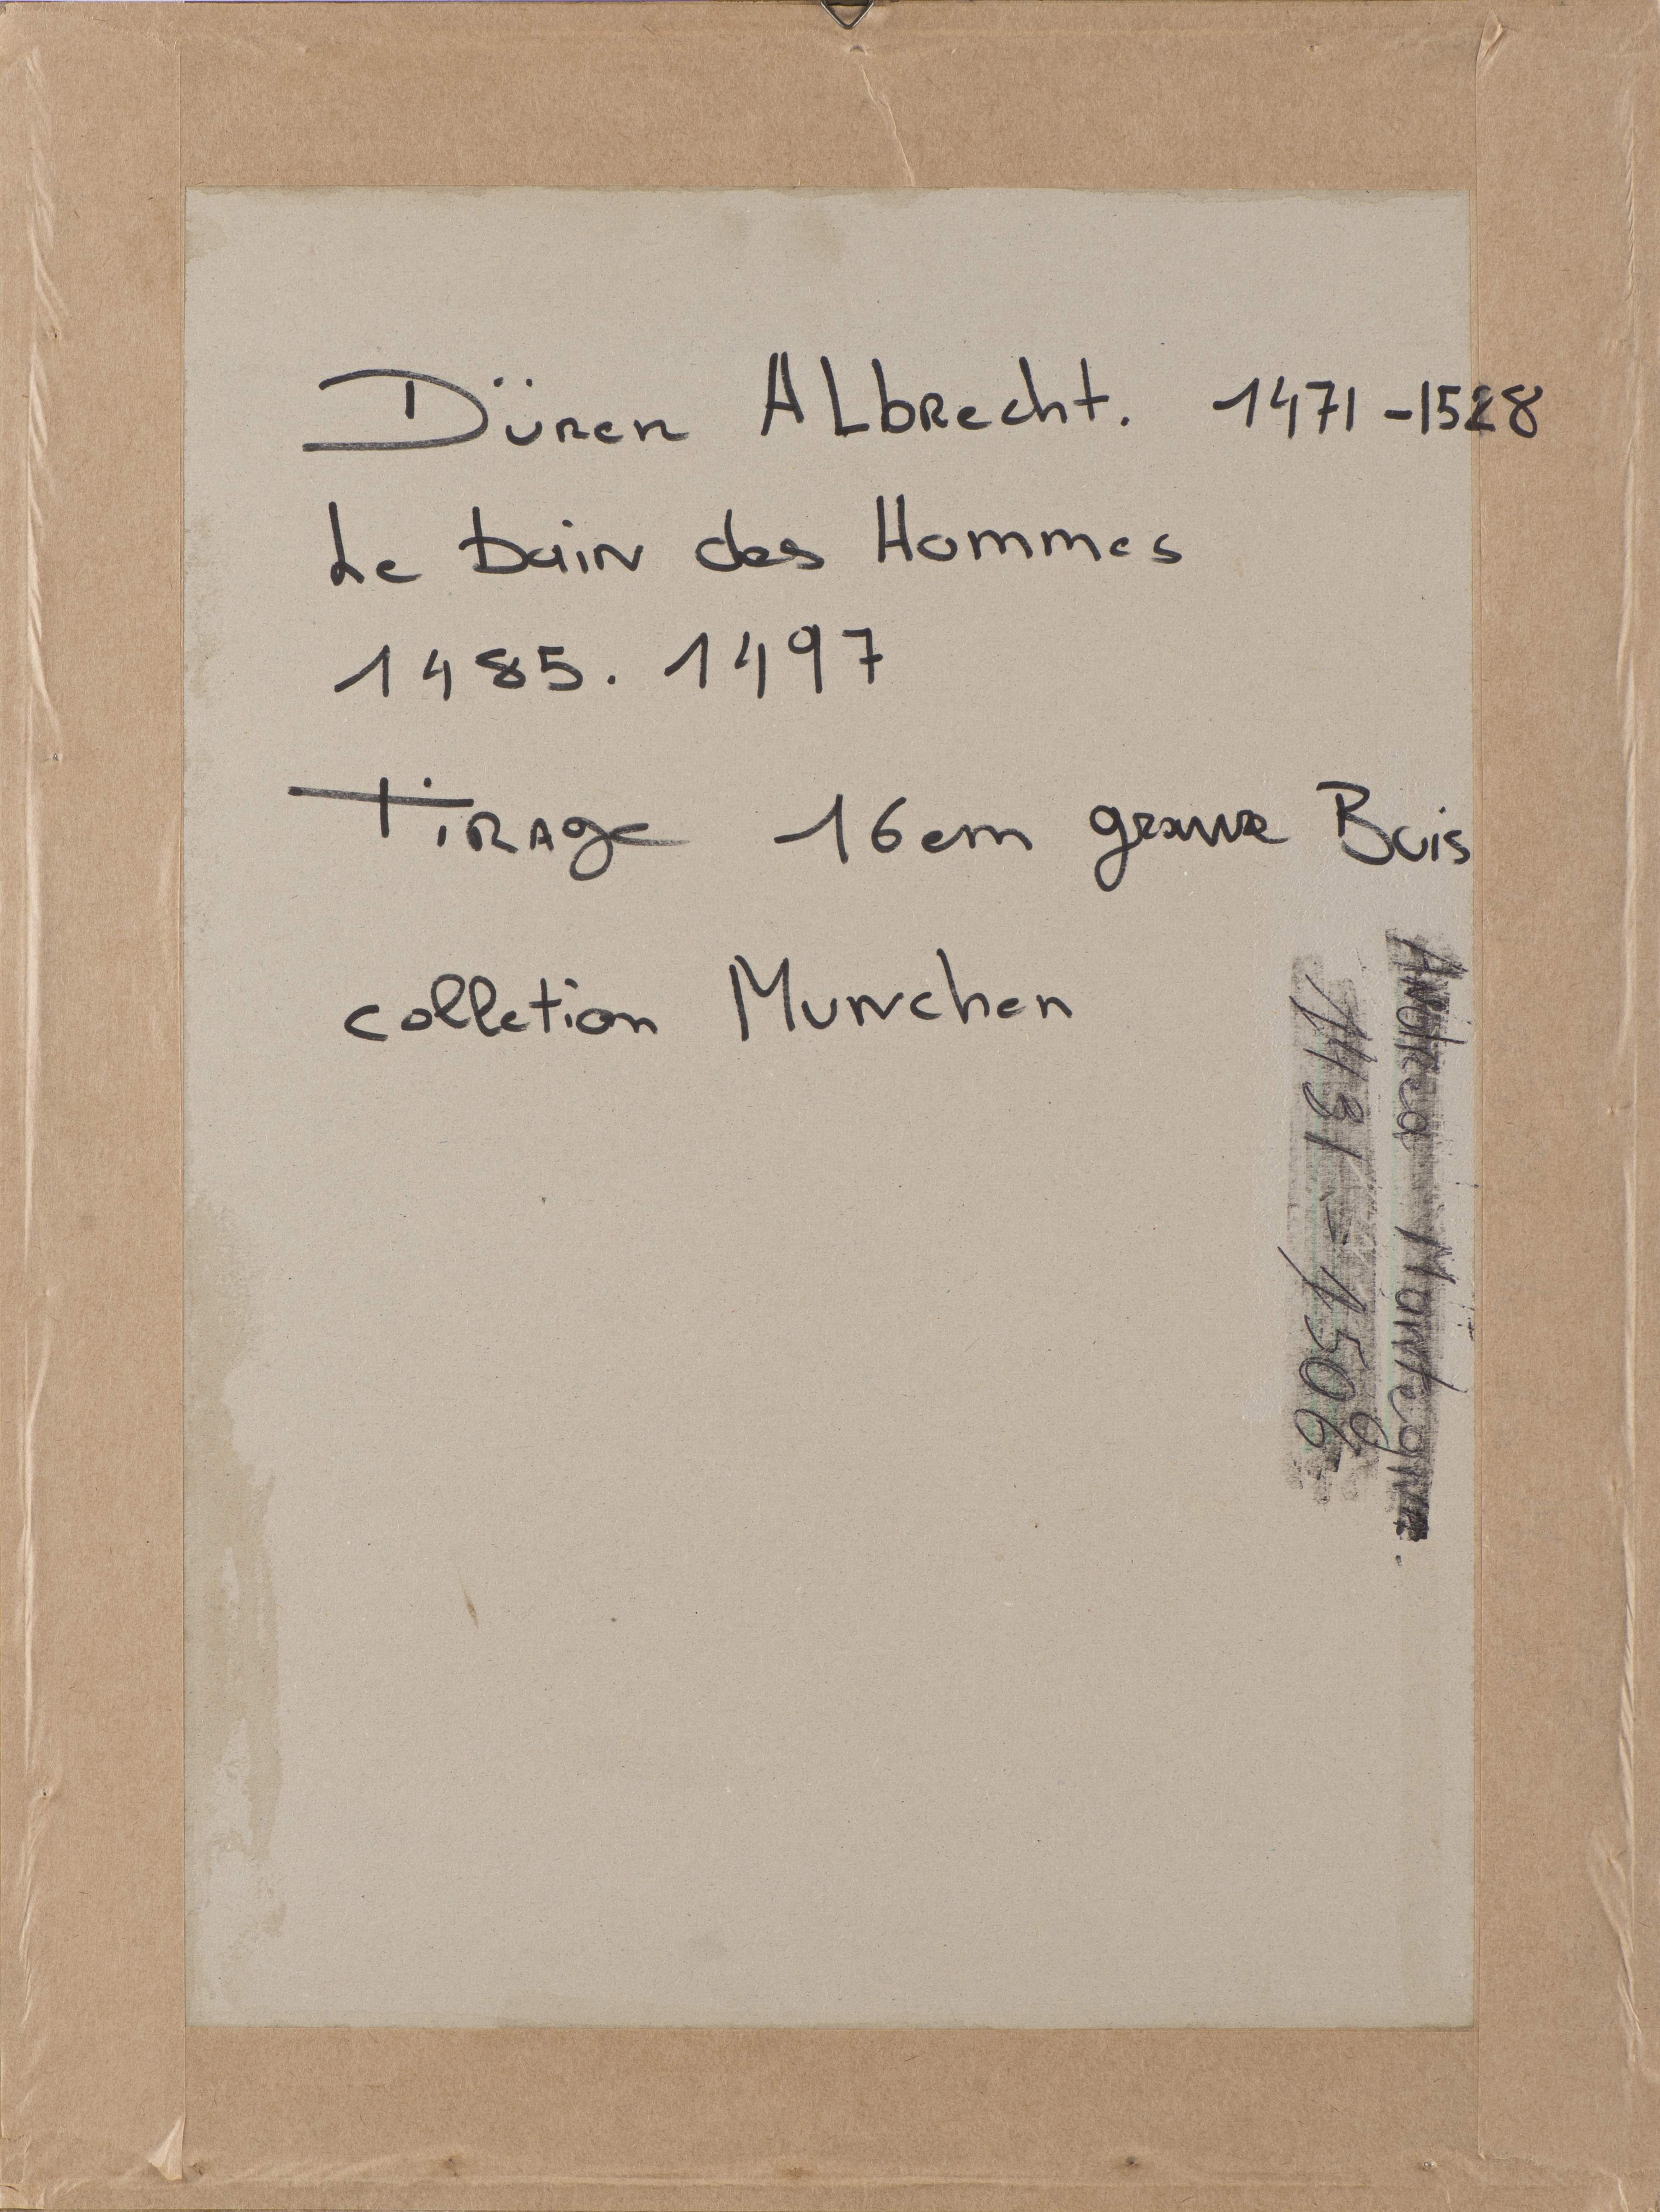 Dürer Albrecht. 1471-1528
Le bain des Hommes
1485. 1497
Tirage 16em gravure Bois
colletion Munchen
Andrea Montegna.
1431 - 1506